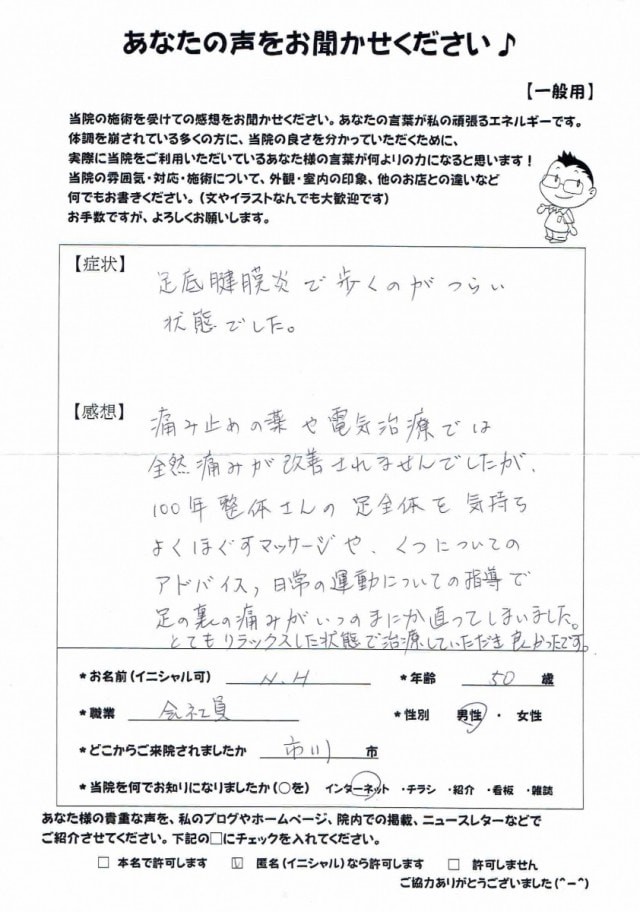 あなたの声をお聞かせください♪
【一般用】
当院の施術を受けての感想をお聞かせください。あなたの言葉が私の頑張るエネルギーです。
体調を崩されている多くの方に、当院の良さを分かっていただくために、
実際に当院をご利用いただいているあなた様の言葉が何よりの力になると思います！
当院の雰囲気・対応・施術について、外観・室内の印象、他のお店との違いなど
何でもお書きください。（文やイラストなんでも大歓迎です）
お手数ですが、よろしくお願いします。
【症状】
足底腱膜炎で歩くのがつらい
状態でした。
【感想】
痛み止めの薬や電気治療では
全然痛みが改善されませんでしたが、
100年整体さんの足全体を気持ち
よくほぐすマッサージや、くつについての
アドバイス，日常の運動についての指導で
足の裏の痛みがいつのまにか直ってしまいました。
とてもリラックスした状態で治療していただき良かったです。
＊お名前（イニシャル可） N.H ＊年齢 50 歳
＊職業 会社員 ＊性別 男性 ・ 女性
＊どこからご来院されましたか 市川 市
＊当院を何でお知りになりましたか（○を） インターネット ・チラシ ・紹介 ・看板 ・雑誌
あなた様の貴重な声を、私のブログやホームページ、院内での掲載、ニュースレターなどで
ご紹介させてください。下記の□にチェックを入れてください。
□ 本名で許可します ☑ 匿名（イニシャル）なら許可します □ 許可しません
ご協力ありがとうございました(^－^)